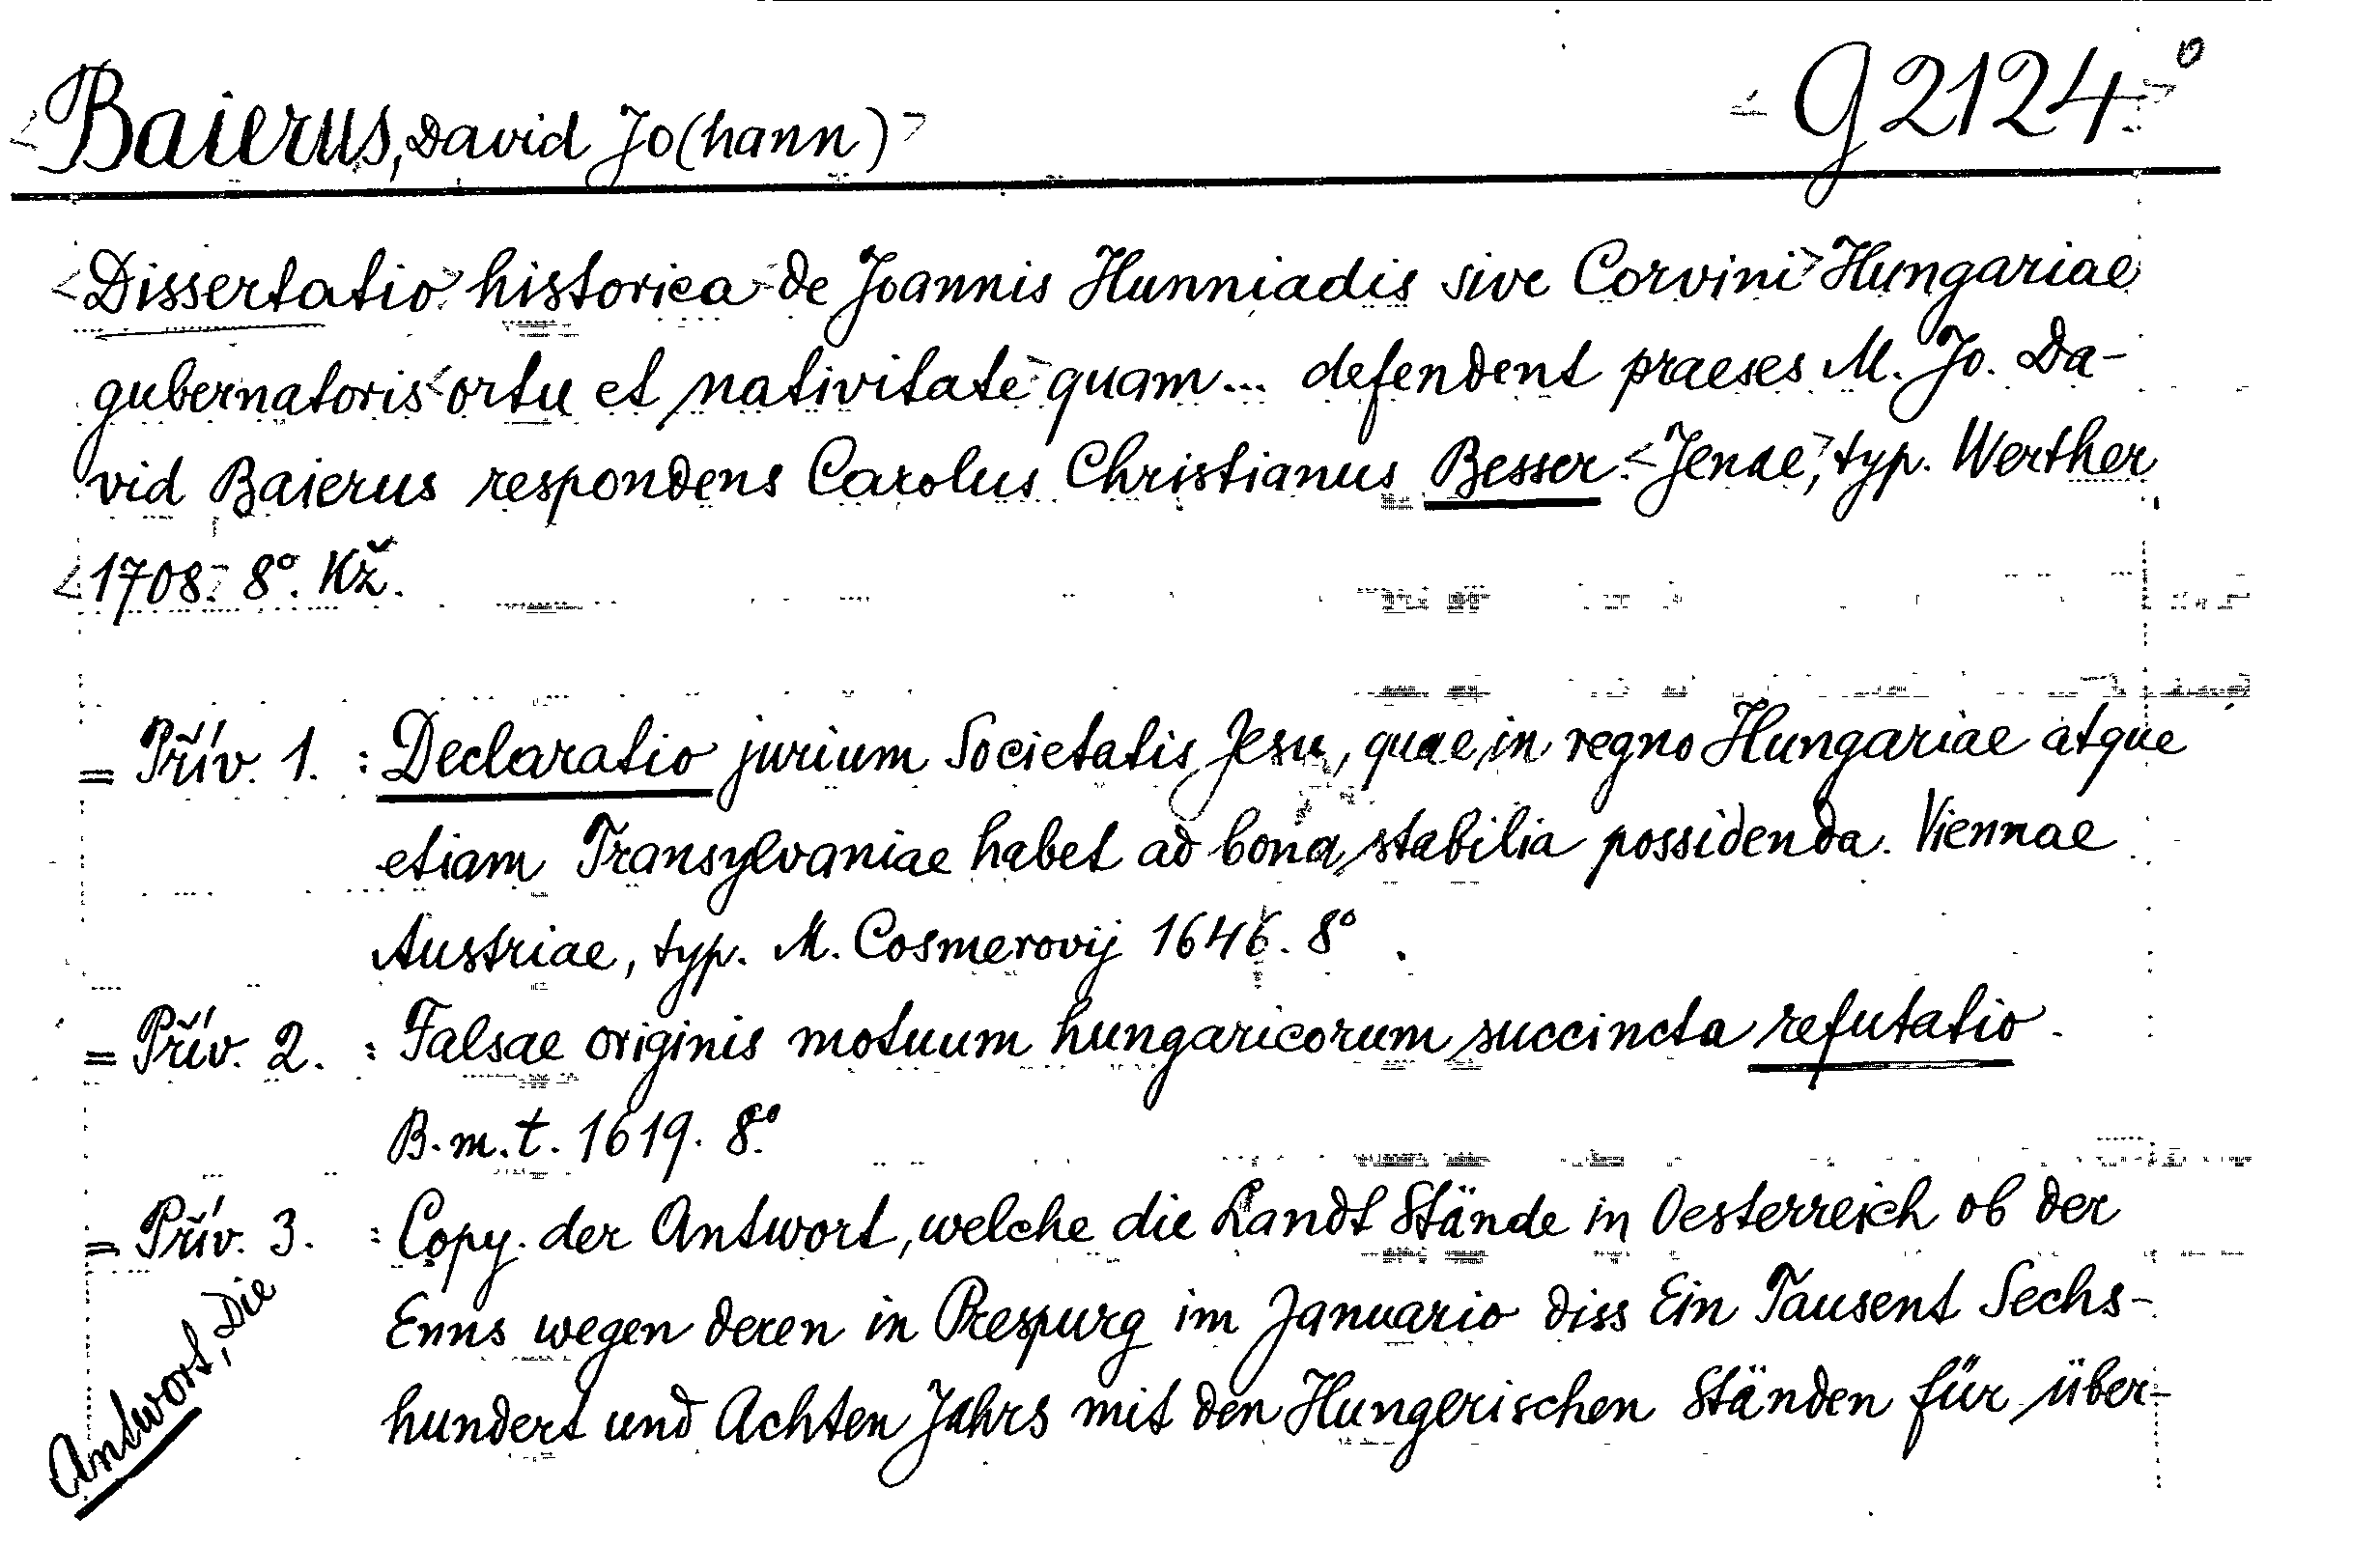 <Baierus, David Jo(hann)> <G 2124>°
<Dissertatio> historica <de Joannis Hunniadis sive Corvini> Hungariae
gubernatoris <ortu et nativitate> quam... defendent praeses M. Jo. Da-
vid Baierus respondens Carolus Christianus Besser. <Jenae>, typ. Werther
<1708.> 8°. Kž.
= Přív. 1. : Declaratio jurium Societatis Jesu, quae in regno Hungariae atque
etiam Transylvaniae habet ad bona stabilia possidenda. Viennae
Austriae, typ. M. Cosmerovij 1646. 8°.
= Přív. 2. : Falsae originis motuum hungaricorum succincta refutatio.
B.m.t. 1619. 8°.
= Přív. 3. : Copy der Antwort, welche die Landt Stände in Oesterreich ob der
Enns wegen deren in Prespurg im Januario diss Ein Tausent Sechs-
hundert und Achten Jahrs mit den Hungerischen Ständen für über-
Antwort, Die